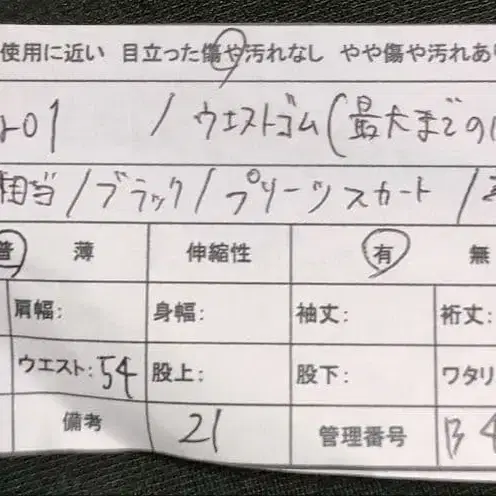 使用に近い 目立った傷や汚れなし やや傷や汚れあり
01 / ウエストゴム(最大までのば
相当/ブラック/プリーツスカート/
普 薄 伸縮性 有 無
肩幅: 身幅: 袖丈: 裄丈:
ウエスト:54 股上: 股下: ワタリ
備考 21 管理番号 B4